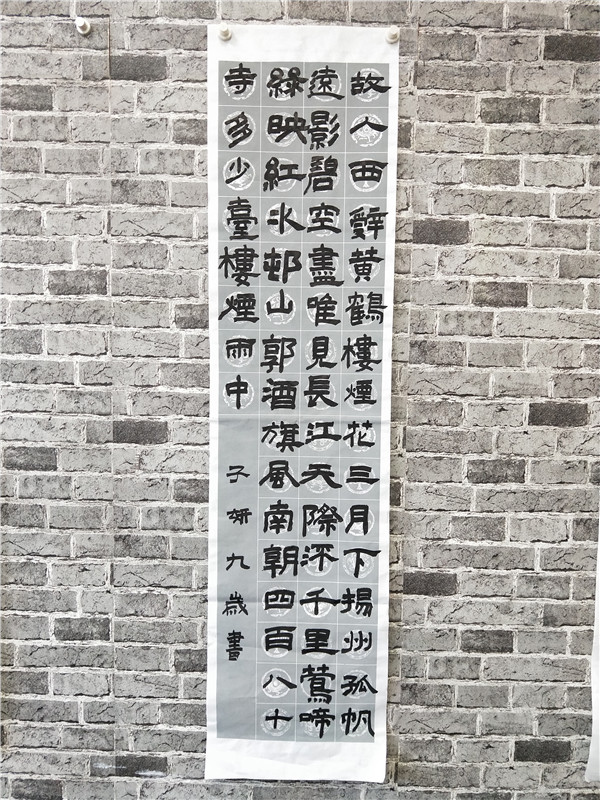 故人西辤黃鶴樓煙花三月下揚州孤帆
遠影碧空盡唯見長江天際流千里鶯啼
綠映紅水邨山郭酒旗風南朝四百八十
寺多少臺樓煙雨中
子妍九歲書